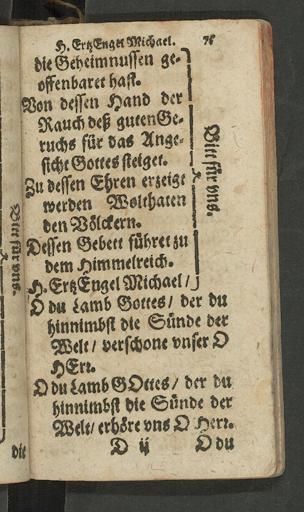 H. ErtzEngel Michael.
die Geheimnussen ge-
offenbaret hast.
Von dessen Hand der
Rauch deß guten Ge-
ruchs für das Ange-
sicht Gottes steiget.
Zu dessen Ehren erzeigt
werden Wolthaten
den Völckern.
Dessen Gebett führet zu
dem Himmelreich.
H. ErtzEngel Michael/
Bitt für vns.
O du Lamb Gottes/ der du
hinnimbst die Sünde der
Welt/ verschone vnser O
HErr.
O du Lamb GOttes/ der du
hinnimbst die Sünde der
Welt/ erhöre vns O Herr.
D ij
O du
Bitt für vns.
die